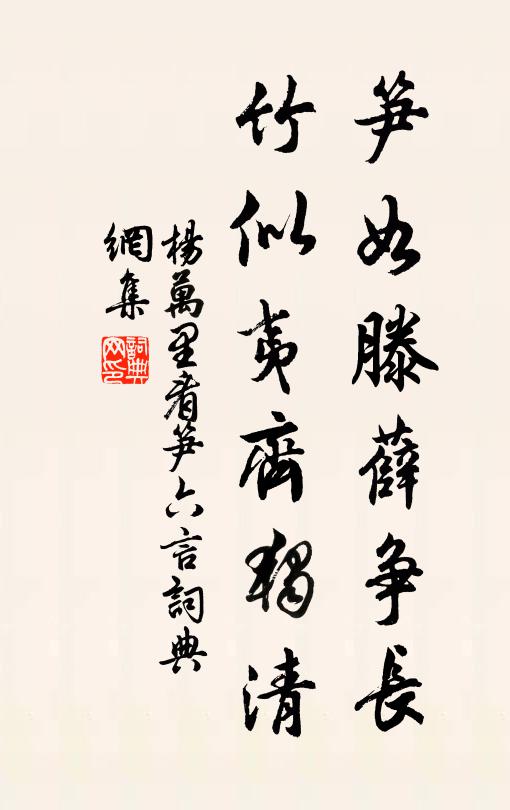 笋如滕薛争长
竹似夷齊獨清
楊萬里看笋六言詞典
網集
詞典
网印